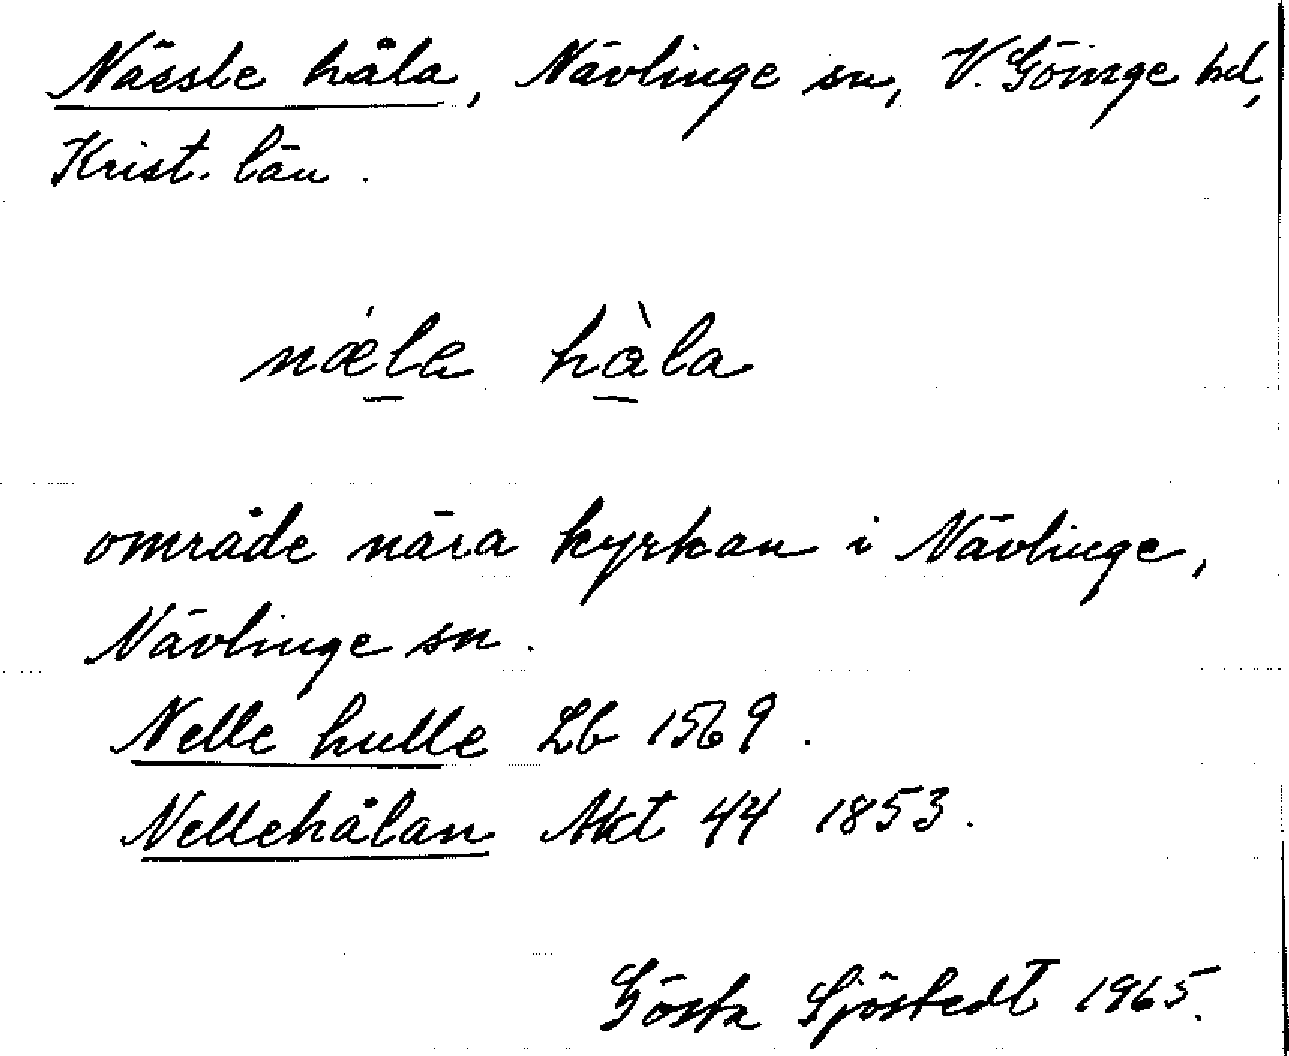 Nässle håla, Nävlinge sn, V. Göinge hd,
Krist. län.
område nära kyrkan i Nävlinge,
Nävlinge sn.
Nelle hulle Lb 1569.
Nellehålan Akt 44 1853.
Gösta Sjöstedt 1965.